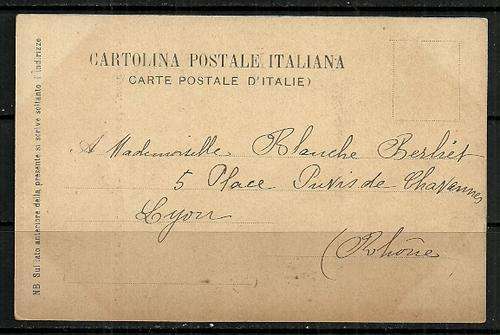 CARTOLINA POSTALE ITALIANA
(CARTE POSTALE D'ITALIE)
A Mademoiselle Blanche Berliet
5 Place Puvis de Chavannes
Lyon
(Rhône
NB Sul lato anteriore della presente si scrive soltanto l'indirizzo